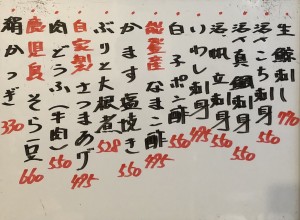 生鯨刺し 770
活こち刺身 550
活真鯛刺身 550
活帆立刺身 550
いわし刺身 495
白子ポン酢 550
能登産なまこ酢 495
かます塩焼き 550
ぶりと大根煮 528
自家製さつまあげ 495
肉どうふ(牛肉) 550
鹿児島そら豆 660
絹かつぎ 330